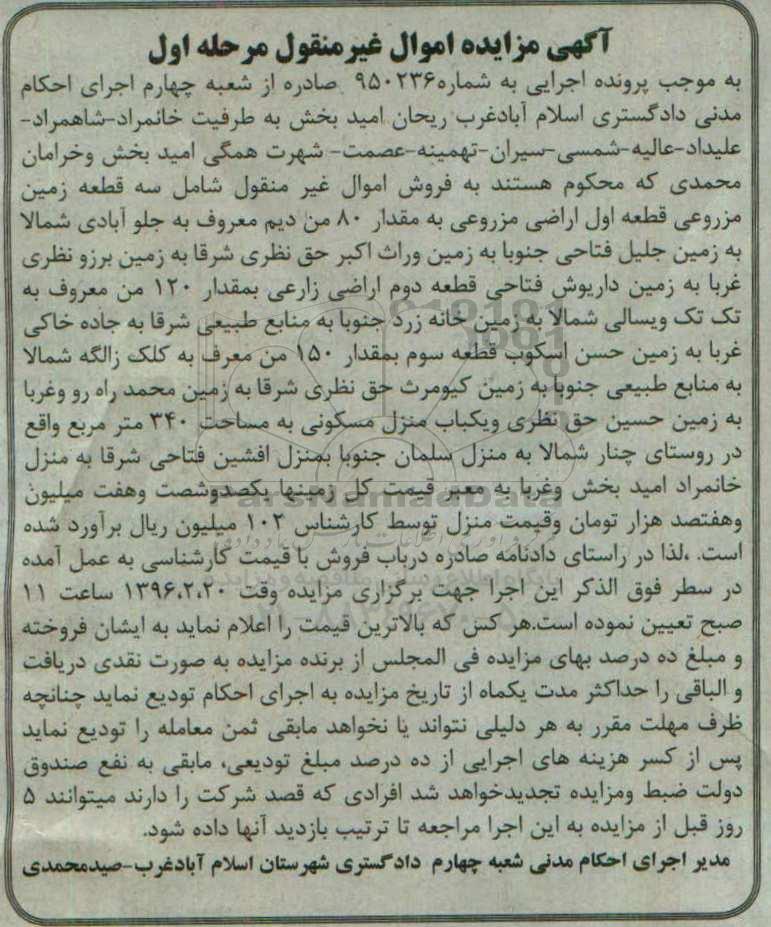 آگهی مزایده اموال غیرمنقول مرحله اول
به موجب پرونده اجرایی به شماره۹۵۰۲۳۶ صادره از شعبه چهارم اجرای احکام
مدنی دادگستری اسلام آبادغرب ریحان امید بخش به طرفیت خانمراد-شاهمراد-
علیداد-عالیه-شمسی-سیران-تهمینه-عصمت- شهرت همگی امید بخش وخرامان
محمدی که محکوم هستند به فروش اموال غیر منقول شامل سه قطعه زمین
مزروعی قطعه اول اراضی مزروعی به مقدار ۸۰ من دیم معروف به جلو آبادی شمالا
به زمین جلیل فتاحی جنوبا به زمین وراث اکبر حق نظری شرقا به زمین برزو نظری
غربا به زمین داریوش فتاحی قطعه دوم اراضی زارعی بمقدار ۱۲۰ من معروف به
تک تک ویسالی شمالا به زمین خانه زرد جنوبا به منابع طبیعی شرقا به جاده خاکی
غربا به زمین حسن اسکوب قطعه سوم بمقدار ۱۵۰ من معرف به کلک زالگه شمالا
به منابع طبیعی جنوبا به زمین کیومرث حق نظری شرقا به زمین محمد راه رو وغربا
به زمین حسین حق نظری ویکباب منزل مسکونی به مساحت ۳۴۰ متر مربع واقع
در روستای چنار شمالا به منزل سلمان جنوبا بمنزل افشین فتاحی شرقا به منزل
خانمراد امید بخش وغربا به معبر قیمت کل زمینها یکصدوشصت وهفت میلیون
وهفتصد هزار تومان وقیمت منزل توسط کارشناس ۱۰۲ میلیون ریال برآورد شده
است. ،لذا در راستای دادنامه صادره درباب فروش با قیمت کارشناسی به عمل آمده
در سطر فوق الذکر این اجرا جهت برگزاری مزایده وقت ۱۳۹۶،۲،۲۰ ساعت ۱۱
صبح تعیین نموده است.هر کس که بالاترین قیمت را اعلام نماید به ایشان فروخته
و مبلغ ده درصد بهای مزایده فی المجلس از برنده مزایده به صورت نقدی دریافت
و الباقی را حداکثر مدت یکماه از تاریخ مزایده به اجرای احکام تودیع نماید چنانچه
ظرف مهلت مقرر به هر دلیلی نتواند یا نخواهد مابقی ثمن معامله را تودیع نماید
پس از کسر هزینه های اجرایی از ده درصد مبلغ تودیعی، مابقی به نفع صندوق
دولت ضبط ومزایده تجدیدخواهد شد افرادی که قصد شرکت را دارند میتوانند ۵
روز قبل از مزایده به این اجرا مراجعه تا ترتیب بازدید آنها داده شود.
مدیر اجرای احکام مدنی شعبه چهارم دادگستری شهرستان اسلام آبادغرب-صیدمحمدی
ParsNamadData